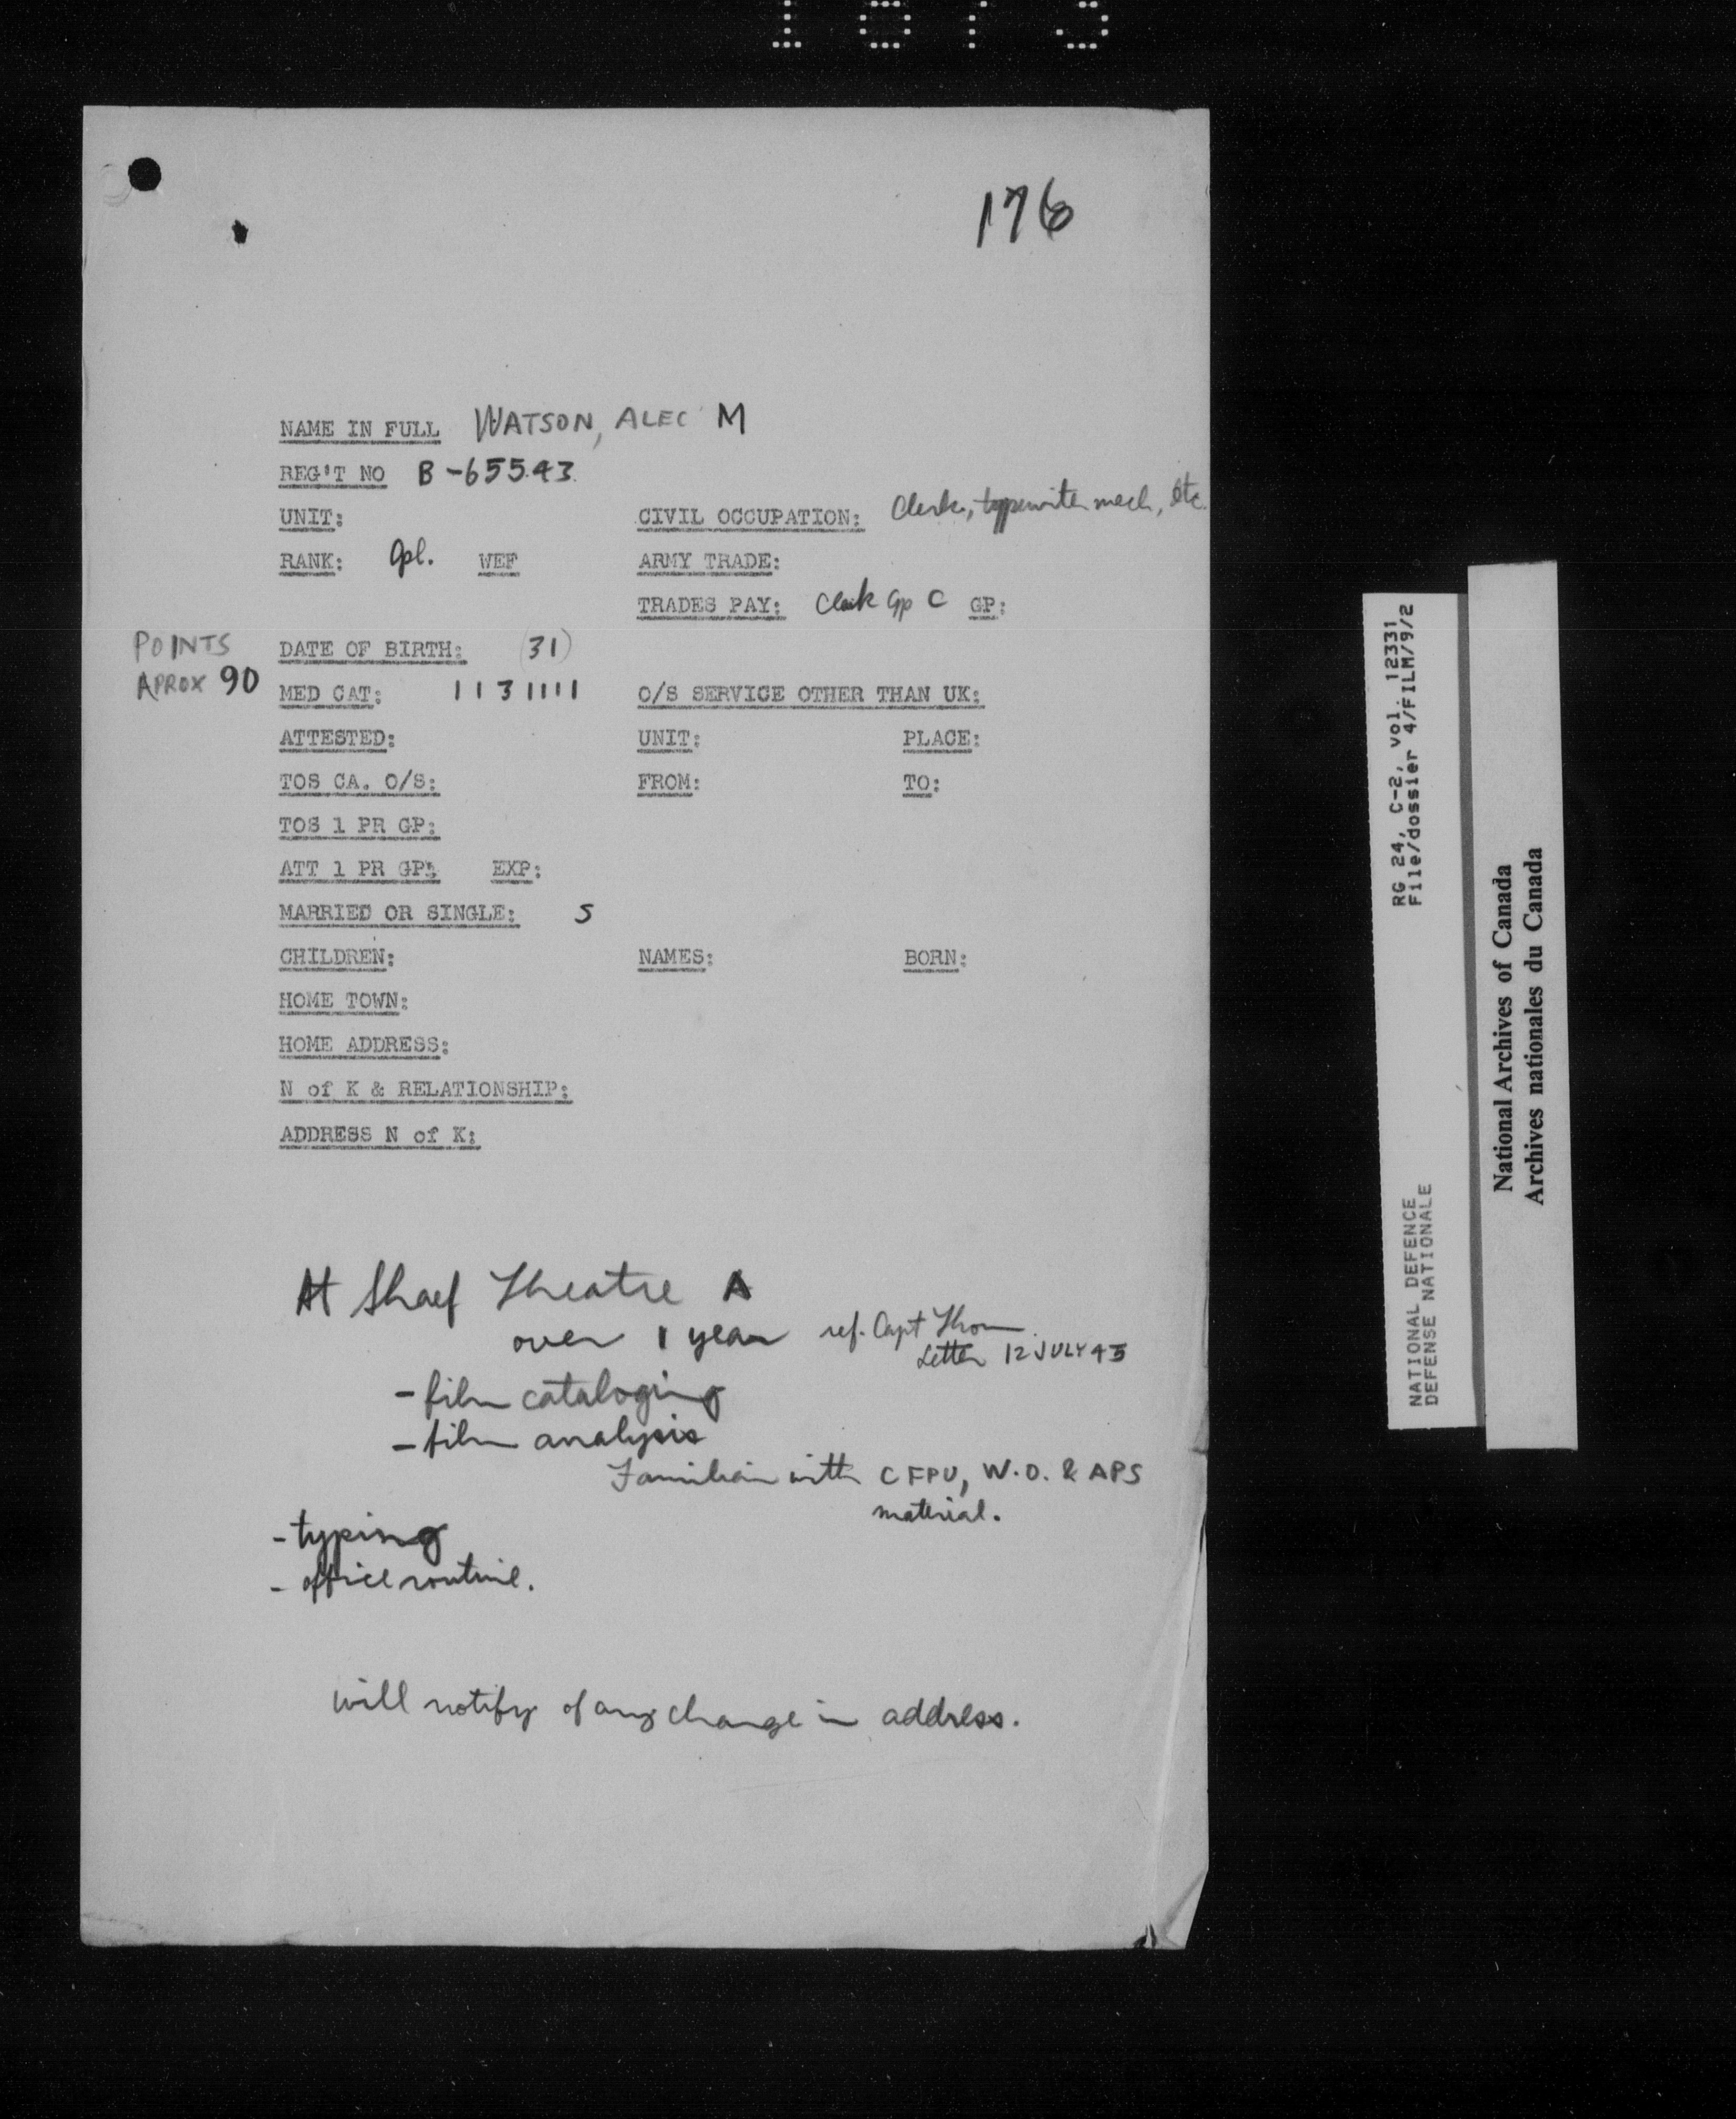 176
NAME IN FULL WATSON, ALEC M
REG'T NO B-65543
UNIT: CIVIL OCCUPATION: Clerk, typewriter mech, etc.
RANK: Cpl. WEF ARMY TRADE:
TRADES PAY: Clerk Gp C GP:
POINTS DATE OF BIRTH: (31)
APROX 90 MED CAT: 1131111 O/S SERVICE OTHER THAN UK:
ATTESTED: UNIT: PLACE:
TOS CA. O/S: FROM: TO:
TOS 1 PR GP:
ATT 1 PR GP: EXP:
MARRIED OR SINGLE: S
CHILDREN: NAMES: BORN:
HOME TOWN:
HOME ADDRESS:
N of K & RELATIONSHIP:
ADDRESS N of K:
At Shaef Theatre A
over 1 year ref. Capt Thom
Letter 12 JULY 45
- film cataloging
- film analysis
Familiar with CFPU, W.O. & APS
material.
- typing
- office routine.
will notify of any change in address.
RG 24, C-2, vol. 12331
File/dossier 4/FILM/9/2
NATIONAL DEFENCE
DEFENSE NATIONALE
National Archives of Canada
Archives nationales du Canada